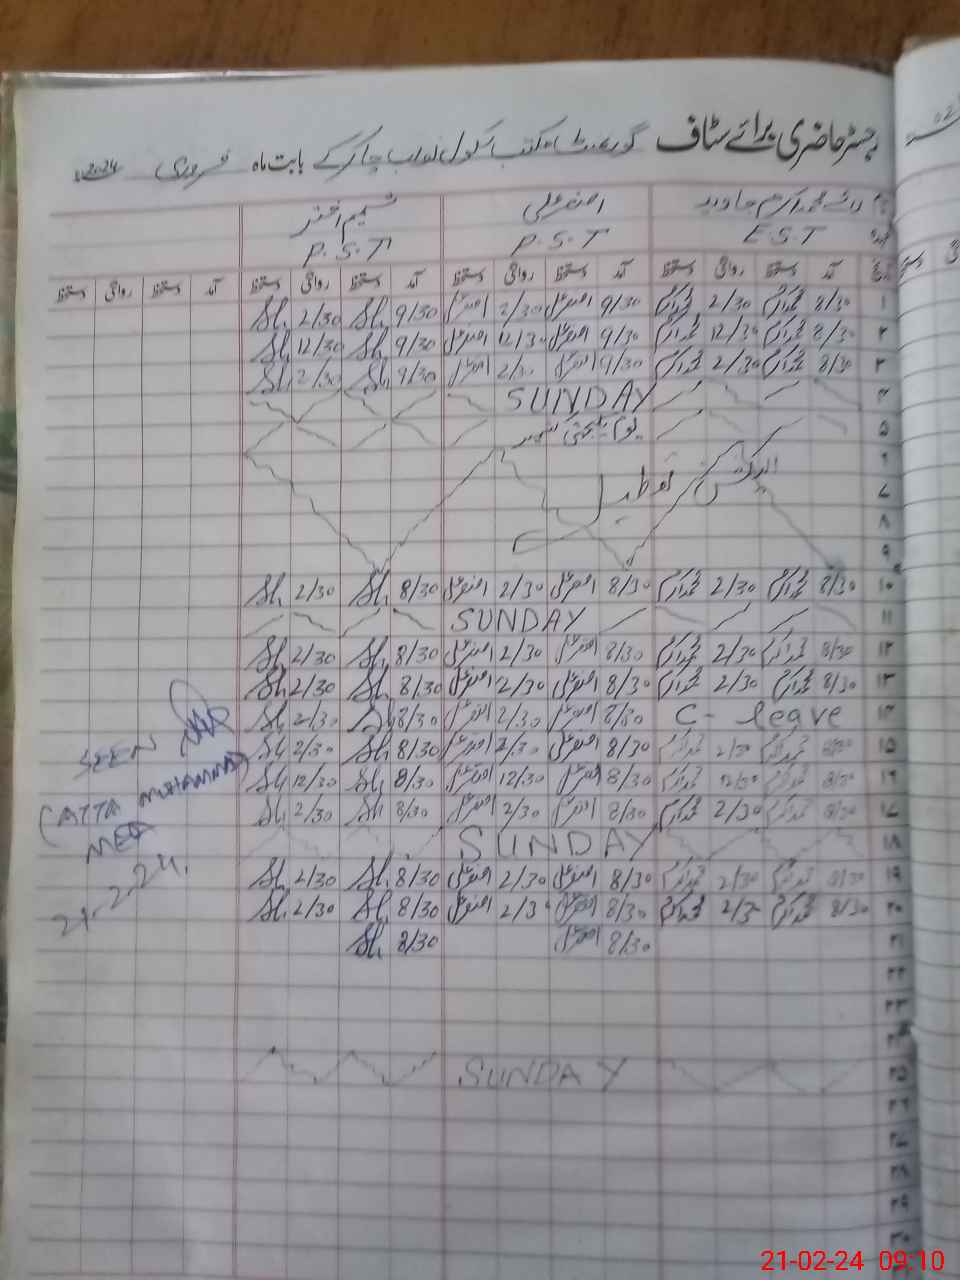 رجسٹر حاضری برائے سٹاف گورنمنٹ مکتب سکول نواب چاکر کے بابت ماہ فروری 2024
نام محمد اکرم جاوید اصغر علی شمیم اختر
عہدہ E.S.T P.S.T P.S.T
تاریخ آمد دستخط روانگی دستخط آمد دستخط روانگی دستخط آمد دستخط روانگی دستخط آمد دستخط روانگی دستخط
۱ 8/30 محمد اکرم 2/30 محمد اکرم 9/30 اصغر علی 2/30 اصغر علی 9/30 Sh 2/30 Sh
۲ 8/30 محمد اکرم 12/30 محمد اکرم 9/30 اصغر علی 12/30 اصغر علی 9/30 Sh 12/30 Sh
۳ 8/30 محمد اکرم 2/30 محمد اکرم 9/30 اصغر علی 2/30 اصغر علی 9/30 Sh 2/30 Sh
۴ SUNDAY
۵ یوم یکجہتی کشمیر
۶ الیکشن تعطیل
۷
۸
۹
۱۰ 8/30 محمد اکرم 2/30 محمد اکرم 8/30 اصغر علی 2/30 اصغر علی 8/30 Sh 2/30 Sh
۱۱ SUNDAY
۱۲ 8/30 محمد اکرم 2/30 محمد اکرم 8/30 اصغر علی 2/30 اصغر علی 8/30 Sh 2/30 Sh
۱۳ 8/30 محمد اکرم 2/30 محمد اکرم 8/30 اصغر علی 2/30 اصغر علی 8/30 Sh 2/30 Sh
۱۴ C- leave 8/30 اصغر علی 2/30 اصغر علی 8/30 Sh 2/30 Sh
۱۵ 8/30 محمد اکرم 2/30 محمد اکرم 8/30 اصغر علی 2/30 اصغر علی 8/30 Sh 2/30 Sh
۱۶ 8/30 محمد اکرم 12/30 محمد اکرم 8/30 اصغر علی 12/30 اصغر علی 8/30 Sh 12/30 Sh
۱۷ 8/30 محمد اکرم 2/30 محمد اکرم 8/30 اصغر علی 2/30 اصغر علی 8/30 Sh 2/30 Sh
۱۸ SUNDAY
۱۹ 8/30 محمد اکرم 2/30 محمد اکرم 8/30 اصغر علی 2/30 اصغر علی 8/30 Sh 2/30 Sh
۲۰ 8/30 محمد اکرم 2/3 محمد اکرم 8/30 اصغر علی 2/3 اصغر علی 8/30 Sh 2/30 Sh
۲۱ 8/30 اصغر علی 8/30 Sh
۲۲
۲۳
۲۴
۲۵ SUNDAY
۲۶
۲۷
۲۸
۲۹
۳۰
SEEN
(ATTA MUHAMMAD)
MEA
21-2-24.
21-02-24 09:10